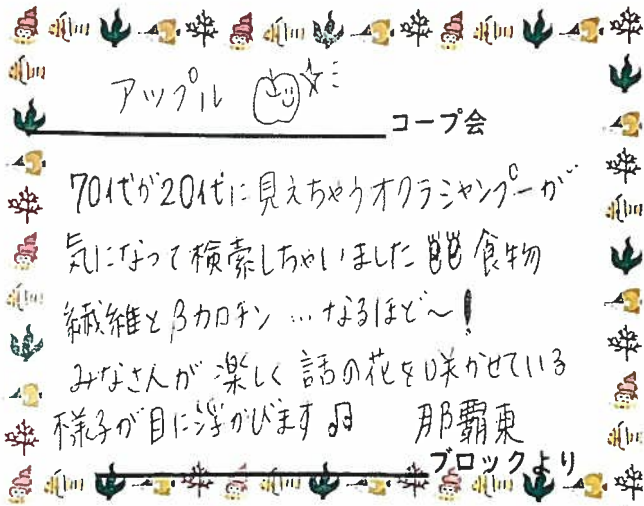 アップル
コープ会
70代が20代に見えちゃうオクラシャンプーが
気になって検索しちゃいました 食物
繊維とβカロチン…なるほど〜!
みなさんが楽しく話の花を咲かせている
様子が目に浮かびます♫ 那覇東
ブロックより